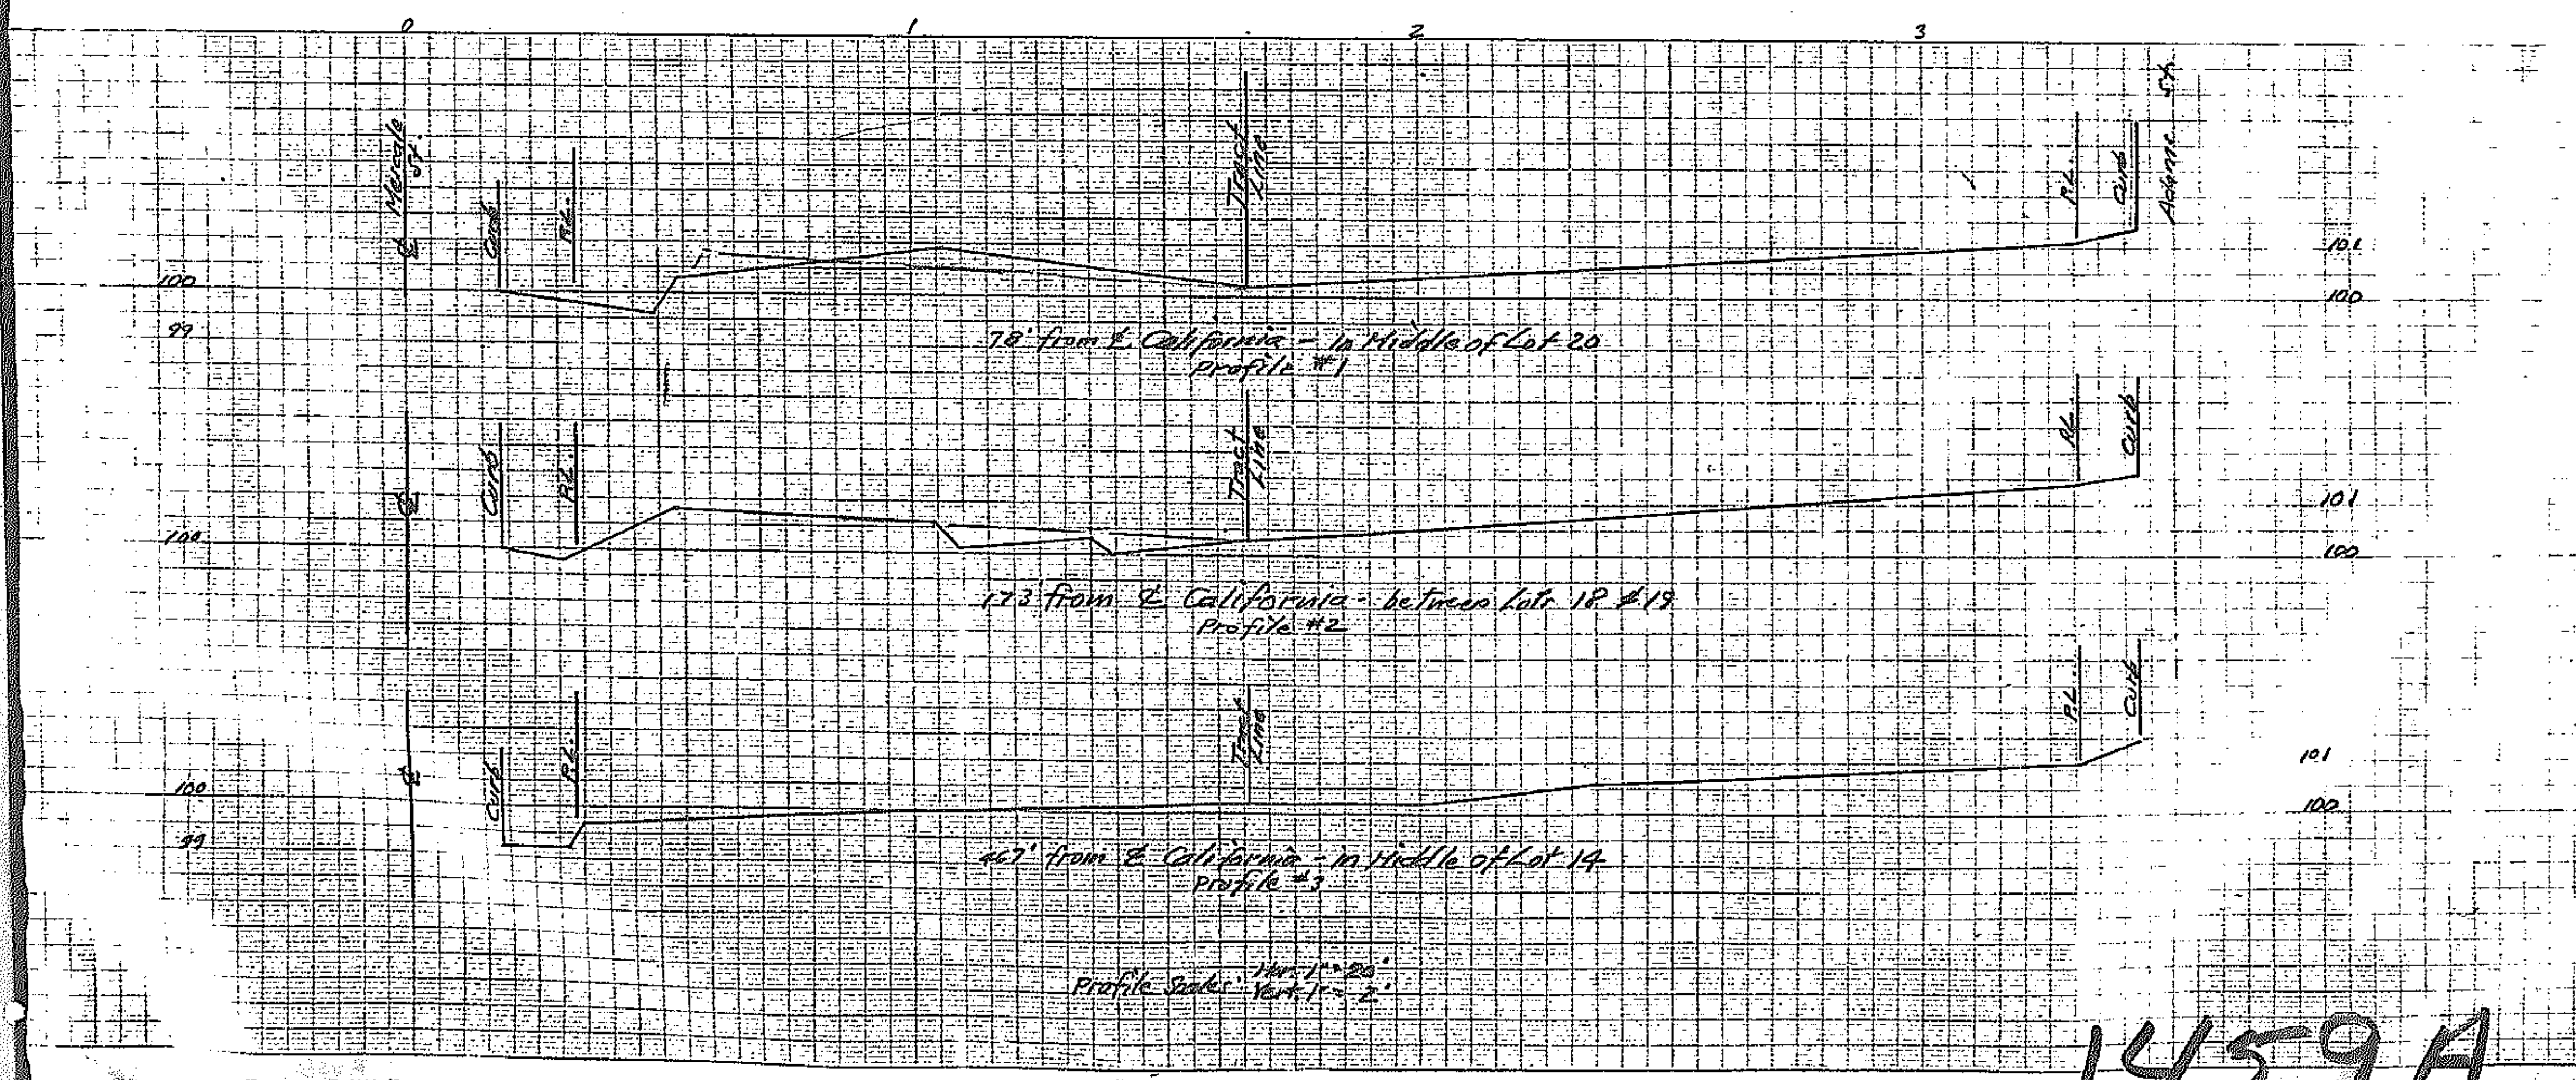 0 1 2 3
℄ Mericale St.
Curb
P.L.
Tract Line
P.L.
Curb
Adams St.
101
100
100
99
78' from ℄ California - In Middle of Lot 20
Profile #1
℄
Curb
P.L.
Tract Line
P.L.
Curb
101
100
100
173' from ℄ California - between Lots 18 & 19
Profile #2
℄
Curb
P.L.
Tract Line
P.L.
Curb
101
100
100
99
467' from ℄ California - In Middle of Lot 14
Profile #3
Profile Scales: Hor. 1" = 20'
Vert. 1" = 2'
1459A